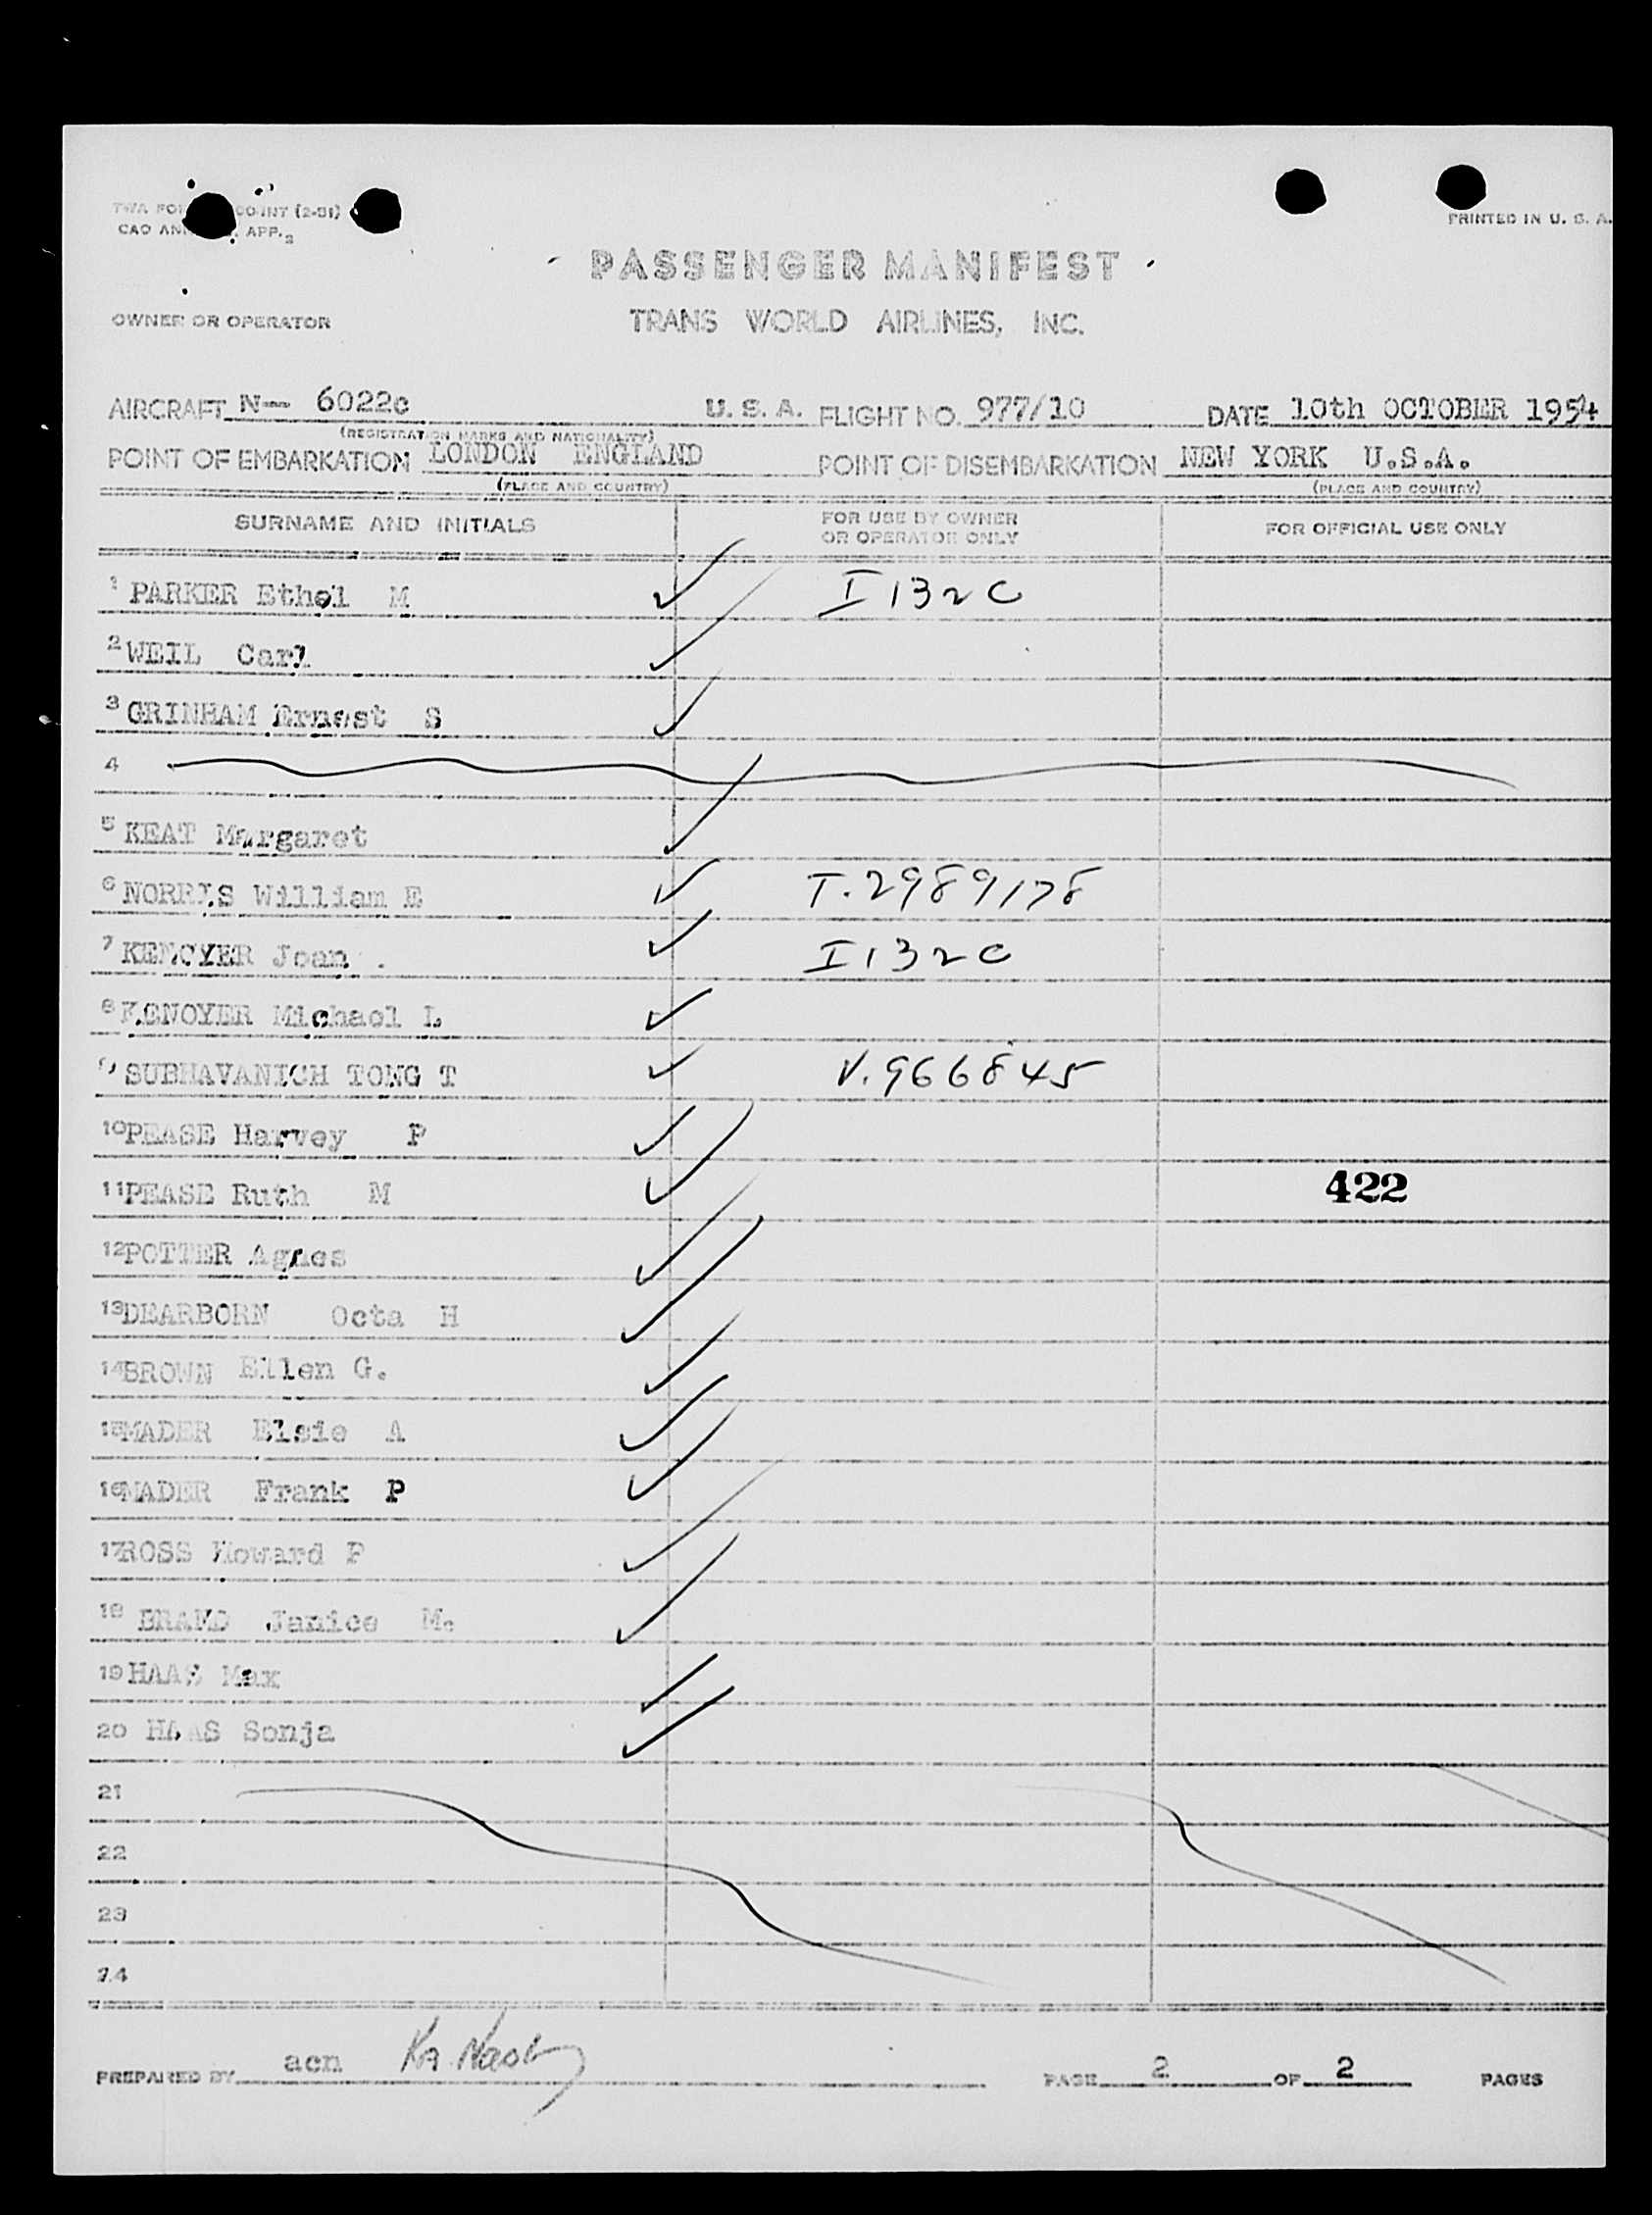 PRINTED IN U. S. A.
CAO APP. 2
PASSENGER MANIFEST
OWNER OR OPERATOR TRANS WORLD AIRLINES, INC.
AIRCRAFT N— 6022c U. S. A. FLIGHT NO. 977/10 DATE 10th OCTOBER 1954
(REGISTRATION MARKS AND NATIONALITY)
POINT OF EMBARKATION LONDON ENGLAND POINT OF DISEMBARKATION NEW YORK U.S.A.
(PLACE AND COUNTRY) (PLACE AND COUNTRY)
SURNAME AND INITIALS FOR USE BY OWNER OR OPERATOR ONLY FOR OFFICIAL USE ONLY
1 PARKER Ethel M I 132C
2 WEIL Carl
3 GRINHAM Ernest S
4
5 KEAT Margaret
6 NORRIS William E T.2989178
7 KENOYER Joan . I 132C
8 KENOYER Michael L
9 SUBHAVANICH TONG T V.966845
10 PEASE Harvey P
11 PEASE Ruth M 422
12 POTTER Agnes
13 DEARBORN Octa H
14 BROWN Ellen G.
15 MADER Elsie A
16 MADER Frank P
17 ROSS Howard P
18 BRAND Janice M.
19 HAAS Max
20 HAAS Sonja
21
22
23
24
PREPARED BY acn PAGE 2 OF 2 PAGES